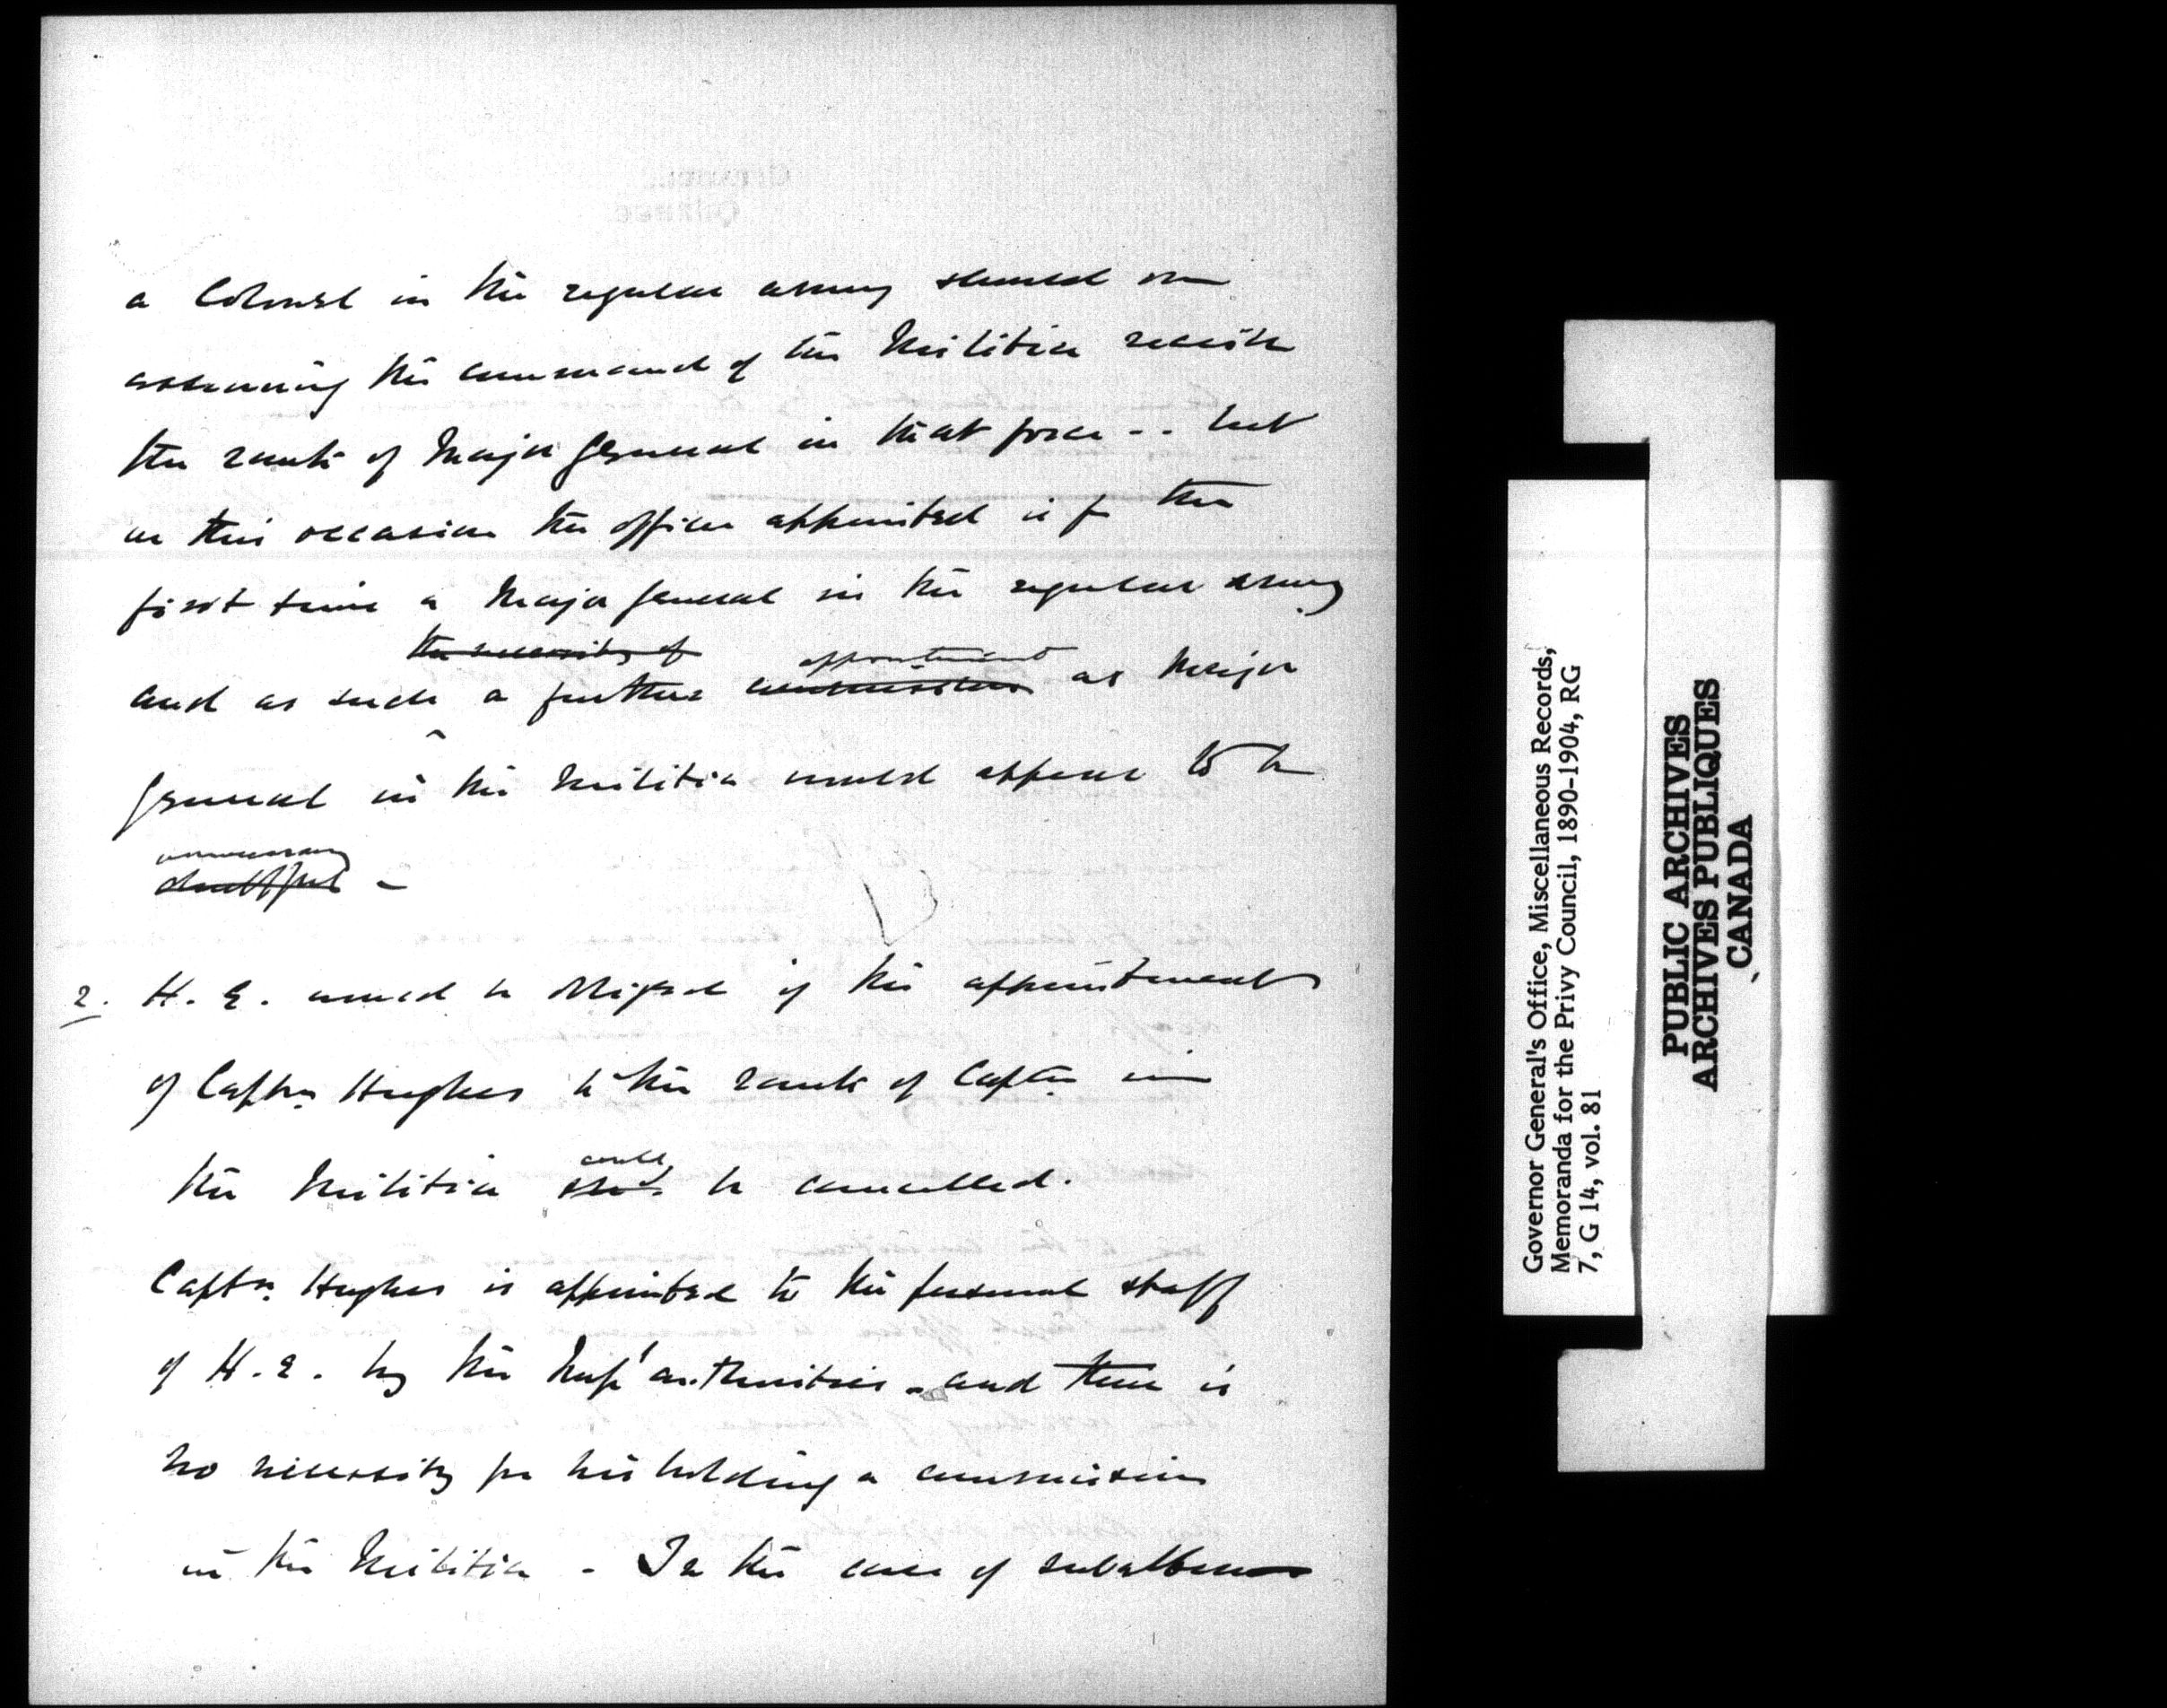 a Colonel in the regular army should on
assuming the command of the Militia receive
the rank of Major General in that force -- but
on this occasion the officer appointed is for the
first time a Major General in the regular army
the necessity of appointment
and as such a further commission as Major
General in the Militia would appear to be
unnecessary
doubtful -
2. H. E. would be obliged if the appointment
of Captn Hughes to the rank of Captn in
the Militia could be cancelled.
Captn. Hughes is appointed to the personal staff
of H. E. by the Imp' authorities - and there is
no necessity for his holding a commission
in the Militia - In the case of subalterns
Governor General's Office, Miscellaneous Records,
Memoranda for the Privy Council, 1890-1904, RG
7, G 14, vol. 81
PUBLIC ARCHIVES
ARCHIVES PUBLIQUES
CANADA